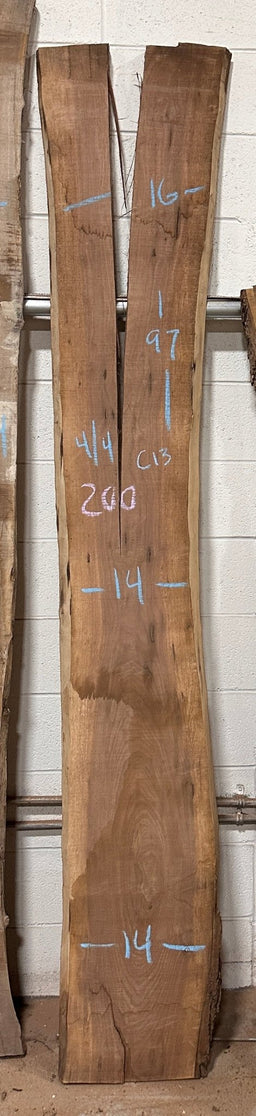 - 16 -
|
97
|
4/4 C13
200
- 14 -
- 14 -